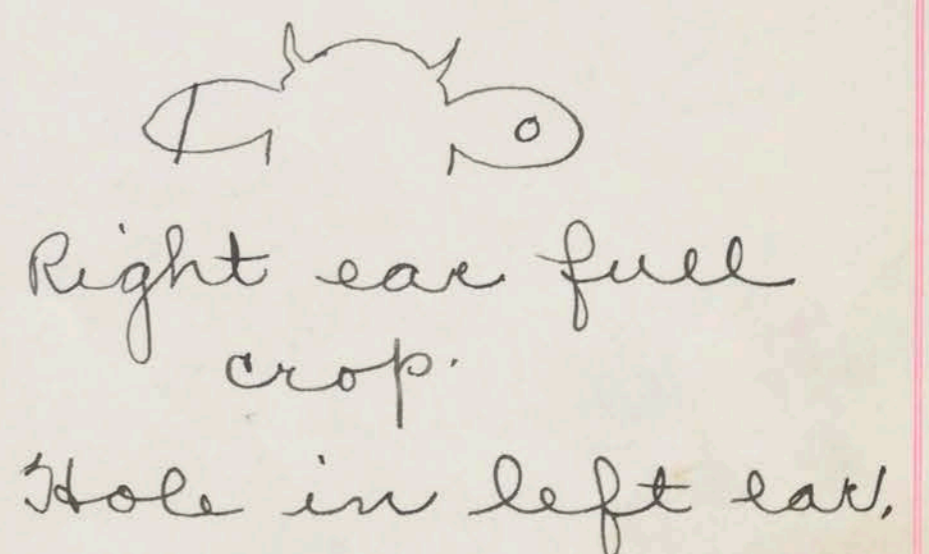 Right ear full
crop.
Hole in left ear.